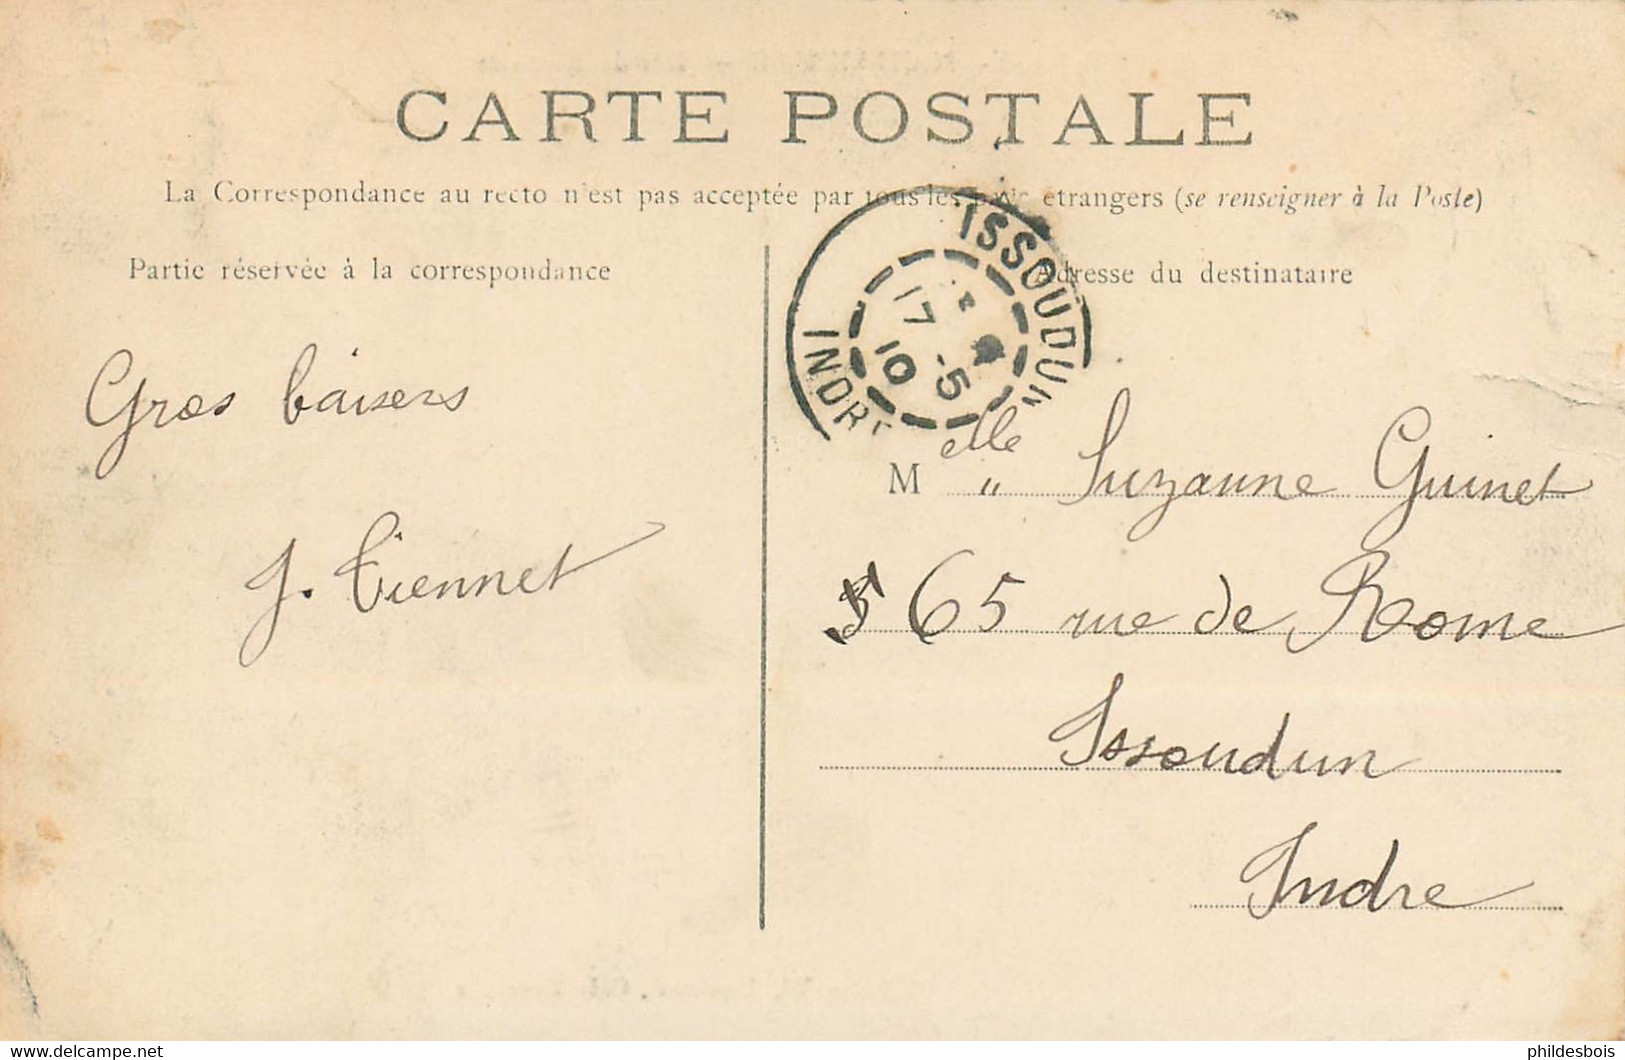 CARTE POSTALE
La Correspondance au recto n'est pas acceptée par tous les pays étrangers (se renseigner à la Poste)
Partie réservée à la correspondance
Adresse du destinataire
ISSOUDUN
17 -5
10
INDRE
Gros baisers
J. Tiennet
Melle " Suzanne Guinet
65 rue de Rome
Issoudun
Indre
delcampe.net
phildesbois